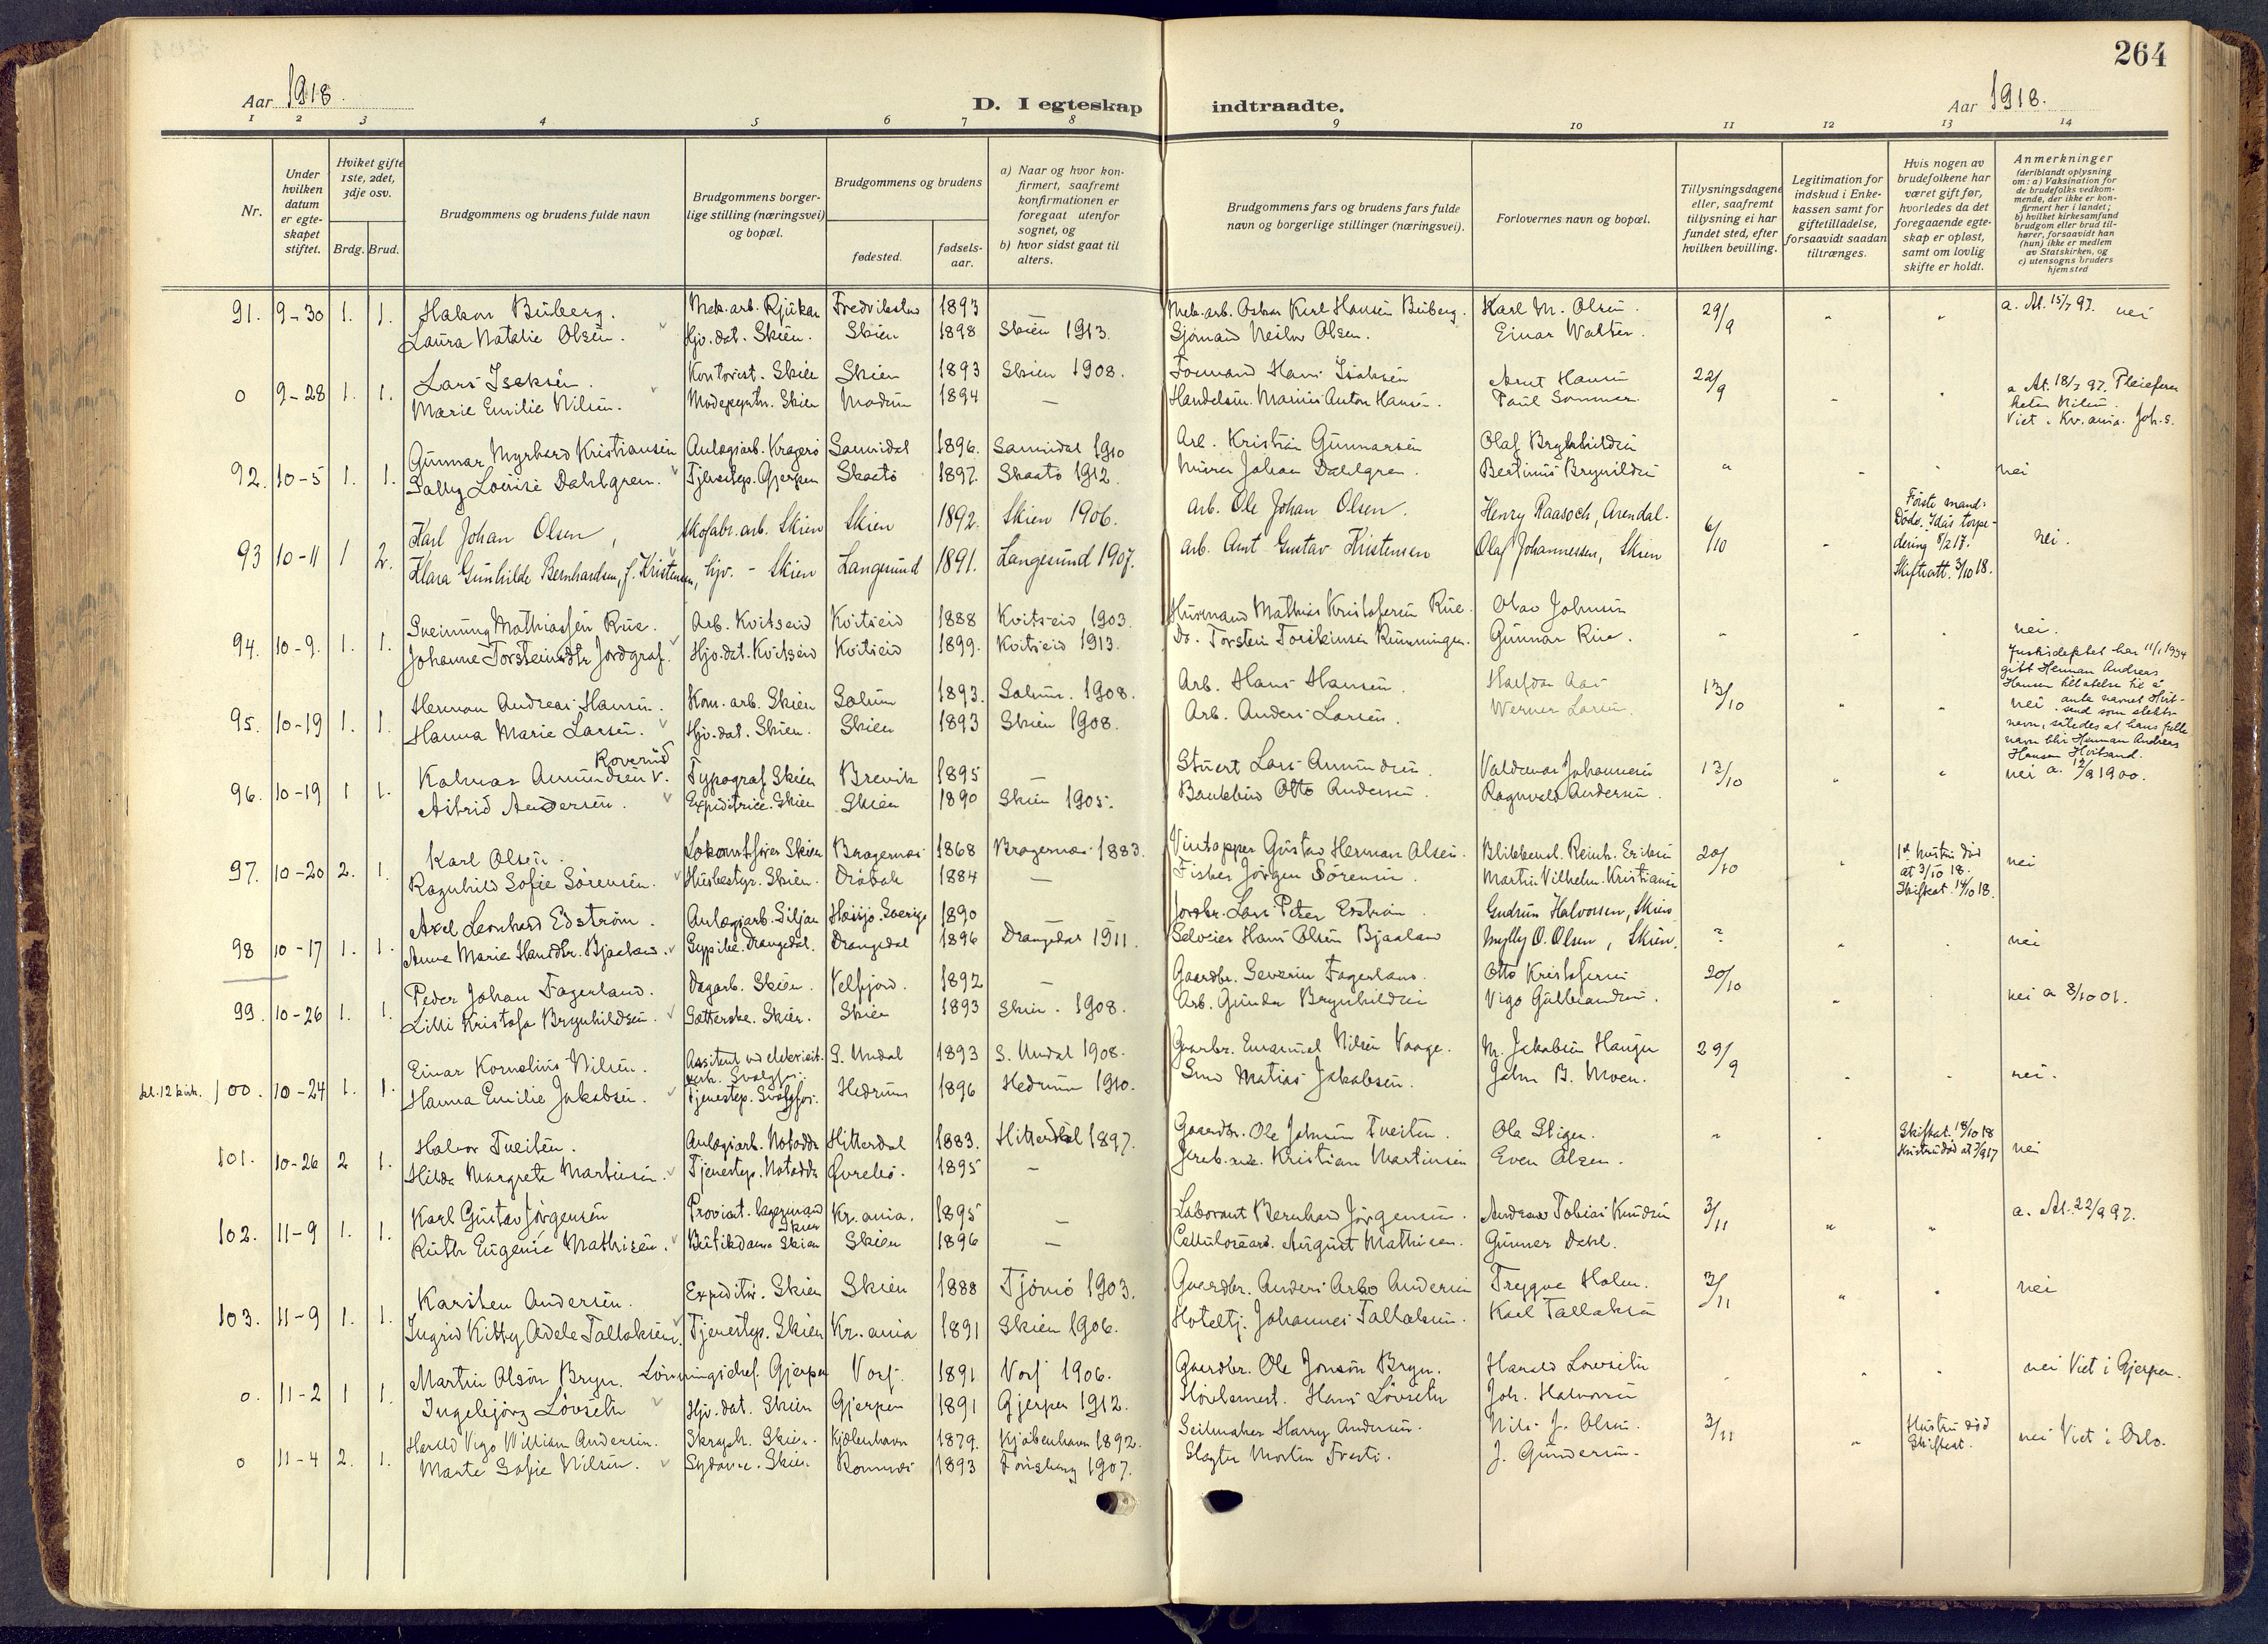 264
Aar 1918.
D. I egteskap indtraadte.
Aar 1918.
1 2 3 4 5 6 7 8 9 10 11 12 13 14
Nr.
Under hvilken datum er egteskapet stiftet.
Hviket gifte 1ste, 2det, 3dje osv.
Brdg. Brud.
Brudgommens og brudens fulde navn
Brudgommens borgerlige stilling (næringsvei) og bopæl.
Brudgommens og brudens
fødested.
fødselsaar.
a) Naar og hvor konfirmert, saafremt konfirmationen er foregaat utenfor sognet, og
b) hvor sidst gaat til alters.
Brudgommens fars og brudens fars fulde navn og borgerlige stillinger (næringsvei).
Forlovernes navn og bopæl.
Tillysningsdagene eller, saafremt tillysning ei har fundet sted, efter hvilken bevilling.
Legitimation for indskud i Enkekassen samt for giftetilladelse, forsaavidt saadan tiltrænges.
Hvis nogen av brudefolkene har været gift før, hvorledes da det foregaaende egteskap er opløst, samt om lovlig skifte er holdt.
Anmerkninger (deriblandt oplysning om: a) Vaksination for de brudefolks vedkommende, der ikke er konfirmert her i landet; b) hvilket kirkesamfund brudgom eller brud tilhører, forsaavidt han (hun) ikke er medlem av Statskirken, og c) utensogns bruders hjemsted
91. 9-30 1. 1. Hakon Buberg. Mek. arb. Rjukan 1893 Mek. arb. Oskar Karl Hansen Buberg. Karl M. Olsen. 29/9 a. At. 15/7 97. nei
Laura Natalie Olsen. Hjv. dat. Skien. Skien 1898 Skien 1913. Sjømand Olsen. Einar Walter.
0 9-28 1. 1. Lars Isaksen. Kontorist. Skien Skien 1893 Skien 1908. Formand Hans Isaksen Arnt Hansen 22/9
Marie Emilie Nilsen. Skien Modum 1894 — Marius Anton Hansen. Paul Sommer
92. 10-5 1. 1. Gunnar Myrbard Kristiansen Anlægsarb. Kragerø Sannidal 1896. Sannidal 1910 Arb. Kristian Gunnarsen Olaf Brynhildsen
Sally Louise Dahlgren. Tjenestep. Gjerpen Skaatø 1897. Skaatø 1912. Murer Johan Dahlgren. Bertinius Brynildsen nei
93 10-11 1 2. Karl Johan Olsen, Skofabr. arb. Skien Skien 1892. Skien 1906. Arb. Ole Johan Olsen. Henry Raasoch, Arendal. 6/10 nei.
Klara Gunhilde Bernhardsen, f. Kristensen, hjv. - Skien Langesund 1891. Langesund 1907. Arb. Arnt Gustav Kristensen Olaf Johannessen, Skien
Første mand: Døde. Idas torpedering 8/2 17. Skifteatt. 3/10 18.
94. 10-9. 1. 1. Sveinung Mathiassen Rue. Arb. Kvitseid Kvitseid 1888 Kvitseid 1903. Husmand Mathias Kristofersen Rue. Olav Johnsen
Johanne Torsteinsdtr Jordgraf. Hjv. dat. Kvitseid Kvitseid 1899. Kvitseid 1913. Do. Torstein Gunnar Rue. nei.
95. 10-19 1. 1. Herman Andreas Hansen. Kom. arb. Skien Solum 1893. Solum. 1908. Arb. Hans Hansen. Halfdan Aas 13/10
Hanna Marie Larsen. Hjv. dat. Skien. Skien 1893 Skien 1908. Arb. Anders Larsen. Werner Larsen nei
Justisdeptet har 11/1 1934 gitt Herman Andreas Hansen tillatelse til å anta navnet Hvitsand som slektsnavn, således at hans fulle navn blir Herman Andreas Hansen Hvitsand.
96. 10-19 1 1. Kalmar Amundsen Roverud Typograf Skien Brevik 1895 — Stuert Lars Amundsen. Valdemar Johannesen 13/10 nei a. 12/9 1900.
Astrid Andersen. Expeditrice. Skien Skien 1890 Skien 1905. Bankbud Otto Andersen. Ragnvald Andersen
97. 10-20 2. 1. Karl Olsen. Lokomtfører Skien Bragernæs 1868 Bragernæs 1883. Vintapper Gustav Herman Olsen. Blikkensl. Reinh. Eriksen 20/10 nei
Ragnhild Sofie Sørensen. Husbestyr. Skien. Drøbak 1884 — Fisker Jørgen Sørensen Martin Vilhelm Kristiansen
1ste hustru død at 3/10 18. Skifteat. 14/10 18.
98 10-17 1. 1. Axel Leonhard Edstrøm. Anlægsarb. Siljan Sverige 1890 Jordbr. Lars Peter Edstrøm. Gudrun Halvorsen, Skien
Anne Marie Hansdtr. Bjaaland. Drangedal. Drangedal 1896 Drangedal 1911. Selveier Hans Olsen Bjaaland Mylly O. Olsen, Skien. nei
99. 10-26 1. 1. Peder Johan Fagerland. Dagarb. Skien. Velfjord. 1892 — Gaardbr. Severin Fagerland. Otto Kristofersen 20/10 nei a 8/10 01.
Lilli Kristofa Brynhildsen. Skien. Skien 1893 Skien. 1908. Arb. Gunder Brynhildsen Vigo Gulbrandsen.
kl. 12 kirk. 100. 10-24 1. 1. Einar Kornelius Nilsen. Assistent ved elektricit. verk. Svælgfos. S. Undal 1893 S. Undal 1908. Gaardbr. Emanuel Nilsen Vaage. M. Jakobsen Haugen 29/9 nei.
Hanna Emilie Jakobsen. Tjenestep. Svælgfos. Hedrum 1896 Hedrum 1910. Smed Matias Jakobsen. John B. Moen.
101. 10-26 2 1. Halvor Tveiten. Anlægsarb. Notodden Hitterdal 1883. Hitterdal 1897. Gaardbr. Ole Johnsen Tveiten. Ola Stigen
Hilda Margrete Martinsen. Tjenestep. Notodden Øvrebø. 1895 — Kristian Martinsen Even Olsen. nei
Skifteat. 18/10 18
102. 11-9 1. 1. Karl Gustav Jørgensen Proviant. lagermand Skien Kr.ania. 1895 — Laborant Bernhard Jørgensen. Andreas Tobias Knudsen 3/11 a. At. 22/9 97.
Ruth Eugenie Mathisen. Butikdame Skien Skien 1896 — Cellulosearb. August Mathisen. Gunnar Dahl.
103. 11-9 1. 1. Karsten Andersen. Expeditør. Skien Skien 1888 Tjømø 1903. Gaardbr. Anders Arbo Andersen Trygve Holm. 3/11 nei
Ingrid Kitty Adele Tallaksen. Tjenestep. Skien Kr.ania 1891 Skien 1906. Hoteltj. Johannes Tallaksen. Karl Tallaksen
0. 11-2 1 1. Martin Olsøn Bryn. Gjerpen Vors 1891 Vors 1906. Gaardbr. Ole Jonsøn Bryn. Harald Løvseth nei Viet i Gjerpen.
Ingebjørg Løvseth Hjv. dat. Skien Gjerpen 1891 Gjerpen 1912. Hans Løvseth Joh. Halvorsen
0 11-4 2. 1. Harald Vigo William Andersen. Skien. Kjøbenhavn 1879. Kjøbenhavn 1892. Seilmaker Harry Andersen. Nils J. Olsen. 3/11 Hustru død Skifteat. nei Viet i Oslo.
Marte Sofie Nilsen. Sydame. Skien 1893 Tønsberg 1907. Slagter Morten J. Gundersen.